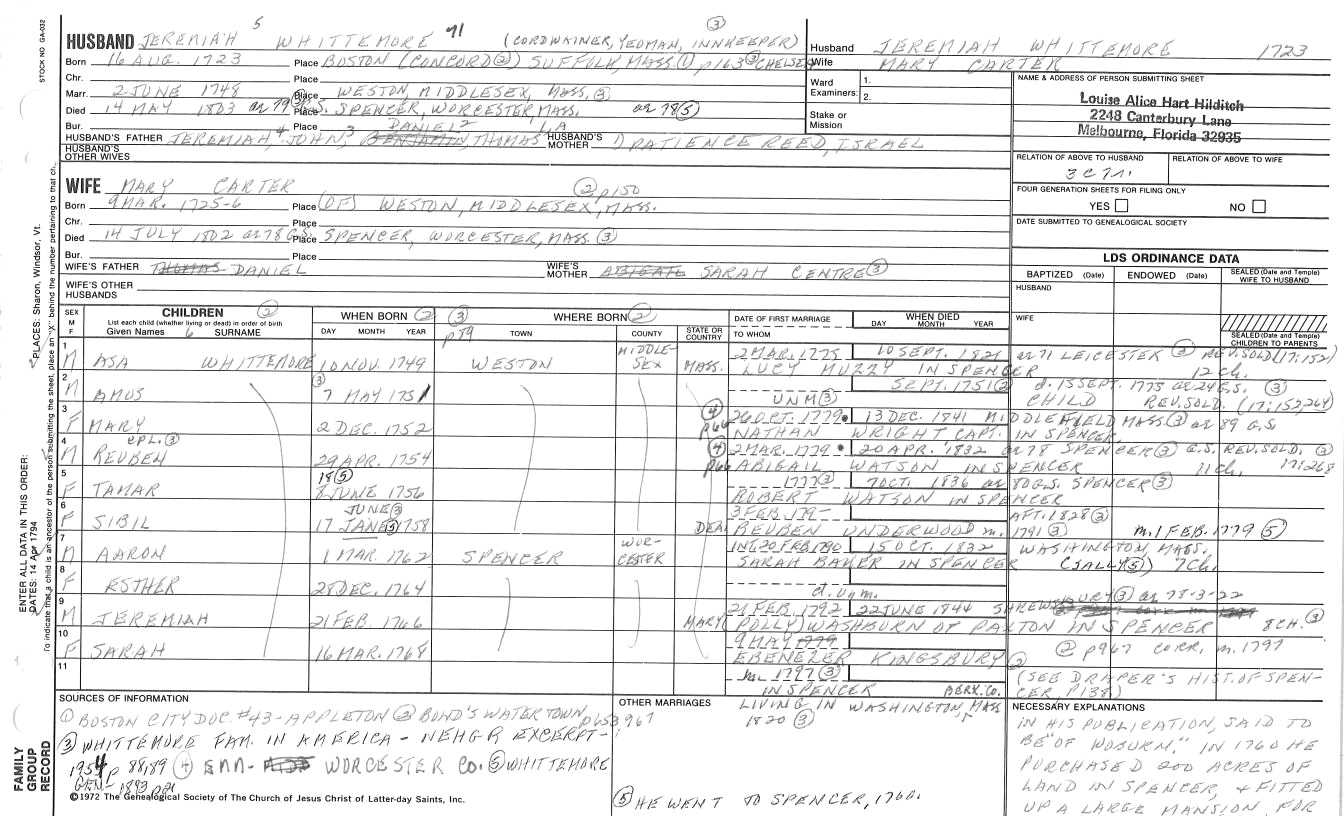 STOCK NO. GA-032
HUSBAND JEREMIAH 5 WHITTEMORE 71 (CORDWAINER, YEOMAN, INNKEEPER) ③
Born 16 AUG. 1723 Place BOSTON (CONCORD②) SUFFOLK, MASS. ① p163 ③ CHELSEA
Chr. Place
Marr. 2 JUNE 1748 Place WESTON, MIDDLESEX, MASS. ③
Died 14 MAY 1803 ae 79 G.S. Place SPENCER, WORCESTER, MASS. ae 78 ⑤
Bur. Place
HUSBAND'S FATHER JEREMIAH 4, JOHN 3, BENJAMIN, DANIEL 2 THOMAS 1 HUSBAND'S MOTHER 1) PATIENCE REED, ISRAEL
HUSBAND'S OTHER WIVES
Husband JEREMIAH WHITTEMORE 1723
Wife MARY CARTER
Ward Examiners: 1. 2.
Stake or Mission
NAME & ADDRESS OF PERSON SUBMITTING SHEET
Louise Alice Hart Hilditch
2248 Canterbury Lane
Melbourne, Florida 32935
RELATION OF ABOVE TO HUSBAND RELATION OF ABOVE TO WIFE
3C7r.
FOUR GENERATION SHEETS FOR FILING ONLY
YES NO
DATE SUBMITTED TO GENEALOGICAL SOCIETY
WIFE MARY CARTER
Born 9 MAR. 1725-6 Place (OF) WESTON, MIDDLESEX, MASS. ② p150
Chr. Place
Died 14 JULY 1802 ae 78 G.S. Place SPENCER, WORCESTER, MASS. ③
Bur. Place
WIFE'S FATHER THOMAS DANIEL WIFE'S MOTHER ABIGAIL SARAH CENTRE ③
WIFE'S OTHER HUSBANDS
LDS ORDINANCE DATA
BAPTIZED (Date) ENDOWED (Date) SEALED (Date and Temple) WIFE TO HUSBAND
HUSBAND
WIFE
SEALED (Date and Temple) CHILDREN TO PARENTS
SEX M F CHILDREN ② List each child (whether living or dead) in order of birth Given Names 6 SURNAME
WHEN BORN ② DAY MONTH YEAR
③ p79 WHERE BORN ② TOWN COUNTY STATE OR COUNTRY
DATE OF FIRST MARRIAGE TO WHOM
WHEN DIED DAY MONTH YEAR
1 M ASA WHITTEMORE 10 NOV. 1749 WESTON MIDDLESEX MASS. 2 MAR. 1775 10 SEPT. 1821 ae 71 LEICESTER ③ REV. SOLD (17:152)
LUCY MUZZY IN SPENCER 12 Ch.
2 M AMOS ③ 7 MAY 1751 SEPT. 1751 ② d. 15 SEPT. 1775 ae 24 G.S. ③
UNM ③ CHILD REV. SOLD. (17:152,264)
3 F MARY 2 DEC. 1752 ④ p66 26 OCT. 1779 13 DEC. 1841 MIDDLEFIELD MASS ③ ae 89 G.S
NATHAN WRIGHT, CAPT. IN SPENCER
4 M REUBEN cpl. ③ 29 APR. 1754 ④ p66 2 MAR. 1779 20 APR. 1832 ae 78 SPENCER ③ G.S. REV. SOLD. ③
ABIGAIL WATSON IN SPENCER 11 Ch. 17:268
5 F TAMAR 18 ⑤ 8 JUNE 1756 1777 ③ 7 OCT. 1836 ae 80 G.S. SPENCER ③
ROBERT WATSON IN SPENCER
6 F SIBIL JUNE ③ 17 JAN ⑤ 1758 3 FEB. 179- AFT. 1828 ③
DEA. REUBEN UNDERWOOD m. 1791 ③ m. 1 FEB. 1779 ⑤
7 M AARON 1 MAR 1762 SPENCER WORCESTER INT. 20 FEB. 1790 15 OCT. 1832 WASHINGTON, MASS.
SARAH BAKER IN SPENCER (SALLY ⑤) 7 Ch.
8 F ESTHER 28 DEC. 1764
d. unm.
9 M JEREMIAH 21 FEB. 1766 21 FEB. 1792 22 JUNE 1844 SHREWSBURY ③ ae 78-3-22
MARY (POLLY) WASHBURN OF PAXTON IN SPENCER 8 CH. ③
10 F SARAH 16 MAR. 1768 9 MAY 1779 ② p967 CORR. m. 1797
EBENEZER KINGSBURY ②
11 m. 1797 ③ (SEE DRAPER'S HIST. OF SPENCER, P138)
IN SPENCER BERK. CO.
SOURCES OF INFORMATION
① BOSTON CITY DOC. #43 - APPLETON ② BOND'S WATERTOWN, p653, 967
③ WHITTEMORE FAM. IN AMERICA - NEHGR EXCERPT -
1954 p 88,89 ④ WORCESTER CO. ⑤ WHITTEMORE
GEN - 1893 p 21
©1972 The Genealogical Society of The Church of Jesus Christ of Latter-day Saints, Inc.
OTHER MARRIAGES LIVING IN WASHINGTON, MASS
1820 ③
⑤ HE WENT TO SPENCER, 1760.
NECESSARY EXPLANATIONS
IN HIS PUBLICATION, SAID TO
BE "OF WOBURN." IN 1760 HE
PURCHASED 200 ACRES OF
LAND IN SPENCER, & FITTED
UP A LARGE MANSION, FOR
ENTER ALL DATA IN THIS ORDER:
DATES: 14 Apr 1794
PLACES: Sharon, Windsor, Vt.
To indicate that a child is an ancestor of the person submitting the sheet, place an "X" behind the number pertaining to that ch
FAMILY GROUP RECORD